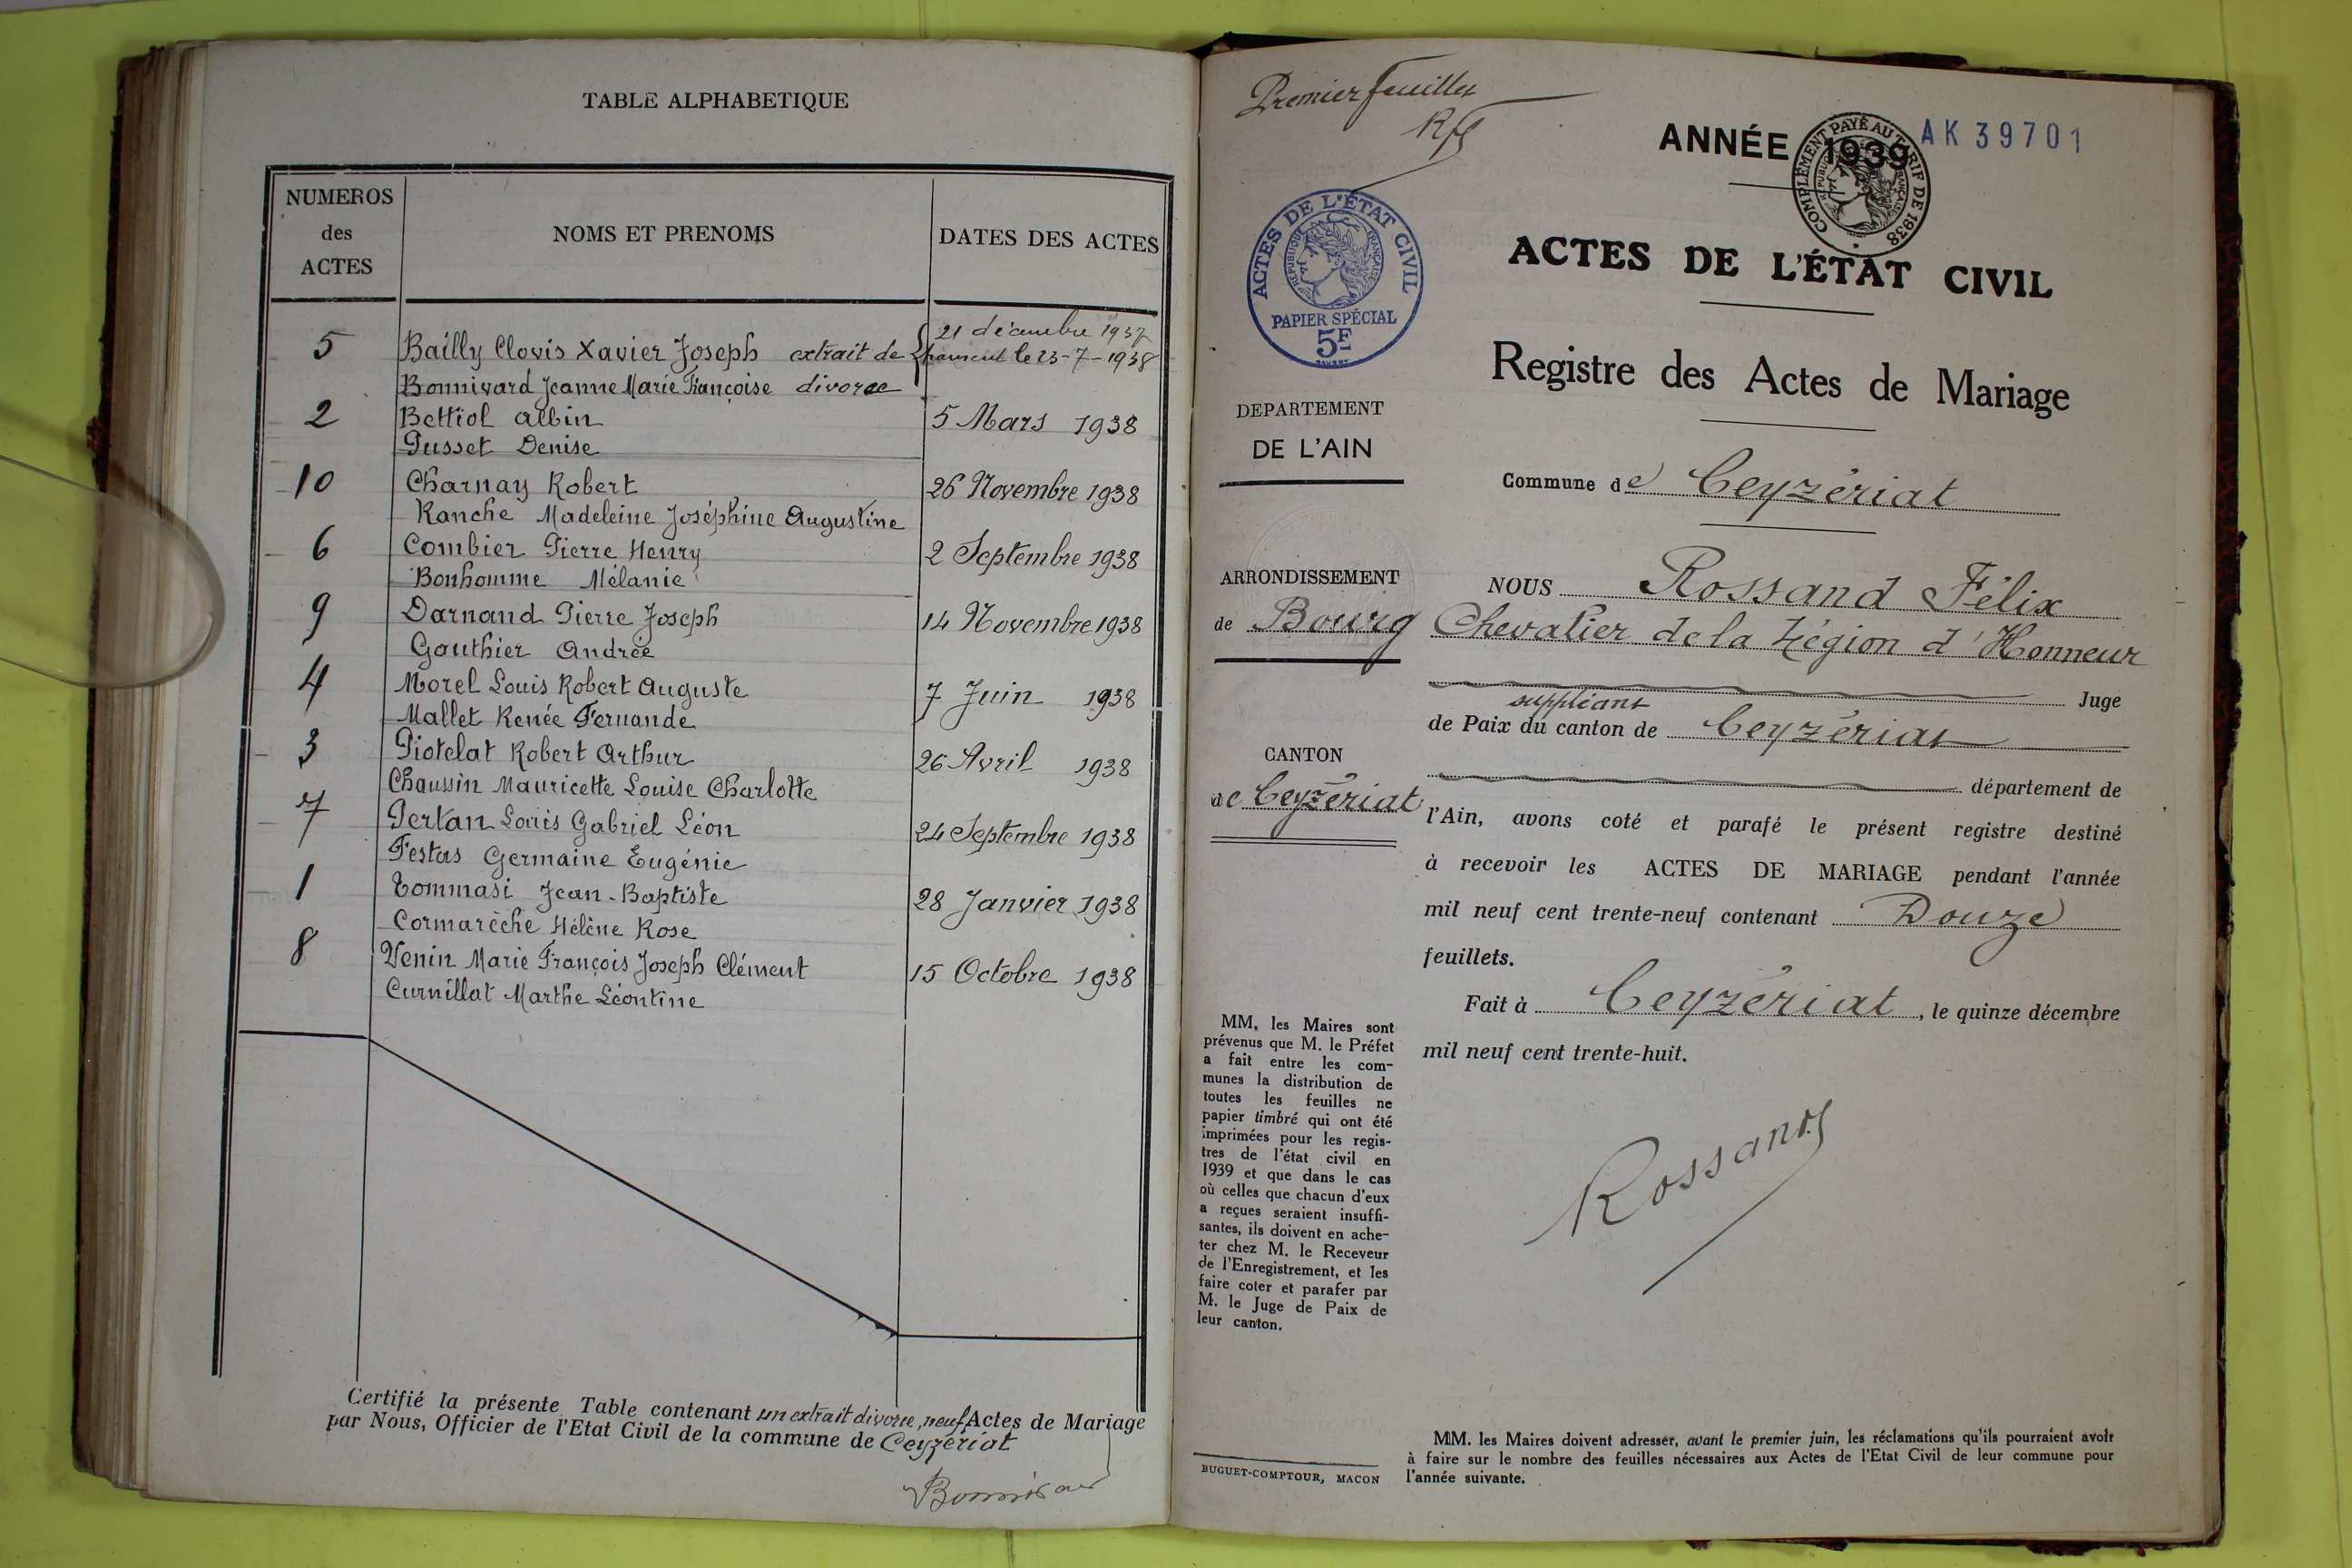 TABLE ALPHABETIQUE
NUMEROS
des
ACTES
NOMS ET PRENOMS
DATES DES ACTES
5 Bailly Clovis Xavier Joseph extrait de 21 décembre 1937
le 23-7-1938
Bonnivard Jeanne Marie Françoise divorce
2 Bettiol Albin 5 Mars 1938
Pusset Denise
10 Charnay Robert 26 Novembre 1938
Ranche Madeleine Joséphine Augustine
6 Combier Pierre Henry 2 Septembre 1938
Bonhomme Mélanie
9 Darnand Pierre Joseph 14 Novembre 1938
Gauthier Andrée
4 Morel Louis Robert Auguste 7 Juin 1938
Mallet Renée Fernande
3 Piotelat Robert Arthur 26 Avril 1938
Chaussin Mauricette Louise Charlotte
7 Pertan Louis Gabriel Léon 24 Septembre 1938
Festas Germaine Eugénie
1 Tommasi Jean-Baptiste 28 Janvier 1938
Cormarèche Hélène Rose
8 Venin Marie François Joseph Clément 15 Octobre 1938
Curnillat Marthe Léontine
Certifié la présente Table contenant un extrait divorce, neuf Actes de Mariage
par Nous, Officier de l'Etat Civil de la commune de Ceyzériat
Premier feuillet
ANNÉE 1939
AK 39701
COMPLÉMENT PAYÉ AU TARIF DE 1938
ACTES DE L'ÉTAT CIVIL
RÉPUBLIQUE FRANÇAISE
PAPIER SPÉCIAL
5F
DEPARTEMENT
DE L'AIN
ARRONDISSEMENT
de Bourg
CANTON
de Ceyzériat
MM, les Maires sont
prévenus que M. le Préfet
a fait entre les com-
munes la distribution de
toutes les feuilles ne
papier timbré qui ont été
imprimées pour les regis-
tres de l'état civil en
1939 et que dans le cas
où celles que chacun d'eux
a reçues seraient insuffi-
santes, ils doivent en ache-
ter chez M. le Receveur
de l'Enregistrement, et les
faire coter et parafer par
M. le Juge de Paix de
leur canton.
BUGUET-COMPTOUR, MACON
ACTES DE L'ÉTAT CIVIL
Registre des Actes de Mariage
Commune de Ceyzériat
NOUS Rossand Félix
Chevalier de la Légion d'Honneur
Juge
suppléant
de Paix du canton de Ceyzériat
département de
l'Ain, avons coté et parafé le présent registre destiné
à recevoir les ACTES DE MARIAGE pendant l'année
mil neuf cent trente-neuf contenant Douze
feuillets.
Fait à Ceyzériat, le quinze décembre
mil neuf cent trente-huit.
Rossand
MM. les Maires doivent adresser, avant le premier juin, les réclamations qu'ils pourraient avoir
à faire sur le nombre des feuilles nécessaires aux Actes de l'Etat Civil de leur commune pour
l'année suivante.